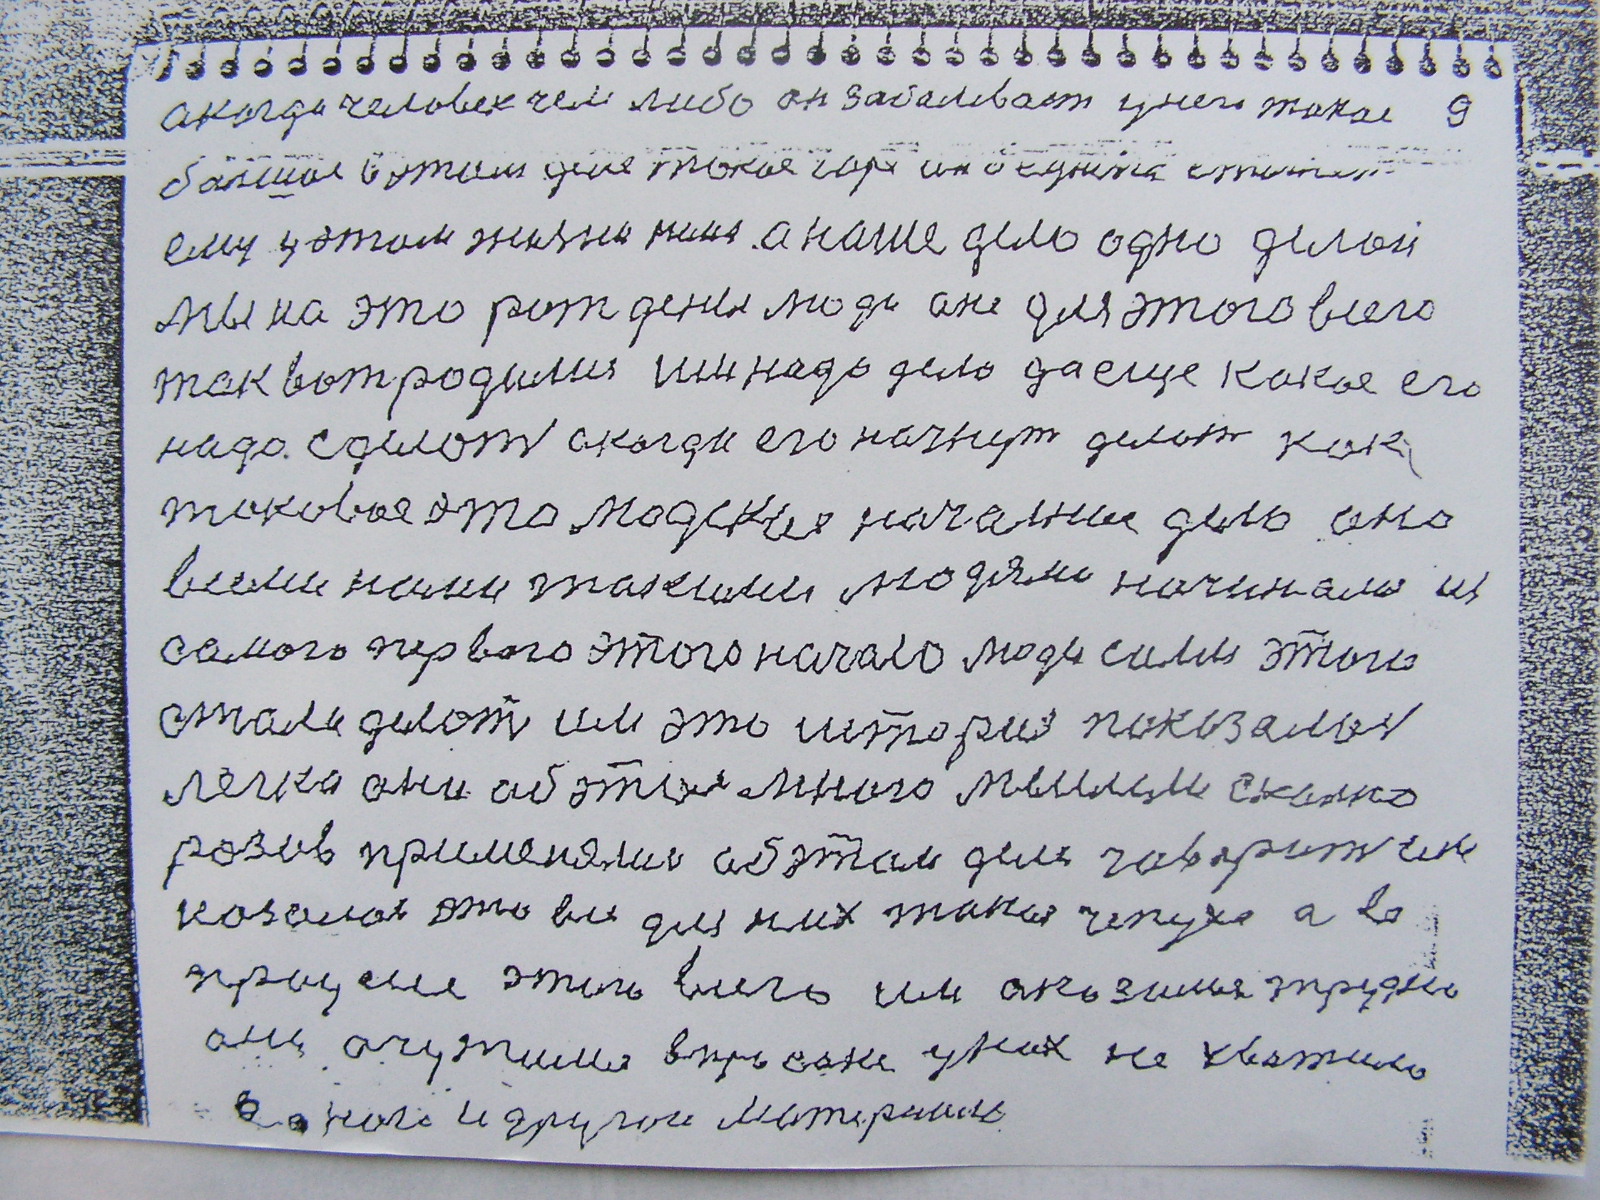 акогда человек чем либо он забалевает унего такое 9
балшое вэтом деле такое горе
ему уэтом жизни нема. анаше дело одно делои
мы на это рождены люди оне для этого всего
так вотродилис им надо дело да еще какое его
надо. сделот акогда его начнут делат как
таковое это людское началное дело оно
всеми нами такими людями начинало из
самого первого этого начало люди сами этого
стали делот им это история показалос
легка они об этом много мыслили сколко
розов применялис обэтом деле говорит им
козолос это все для них такая чепуха а во
процессе этого всего им оказалося трудно
они очутилис впросоке уних не хватило
одного и другого материала